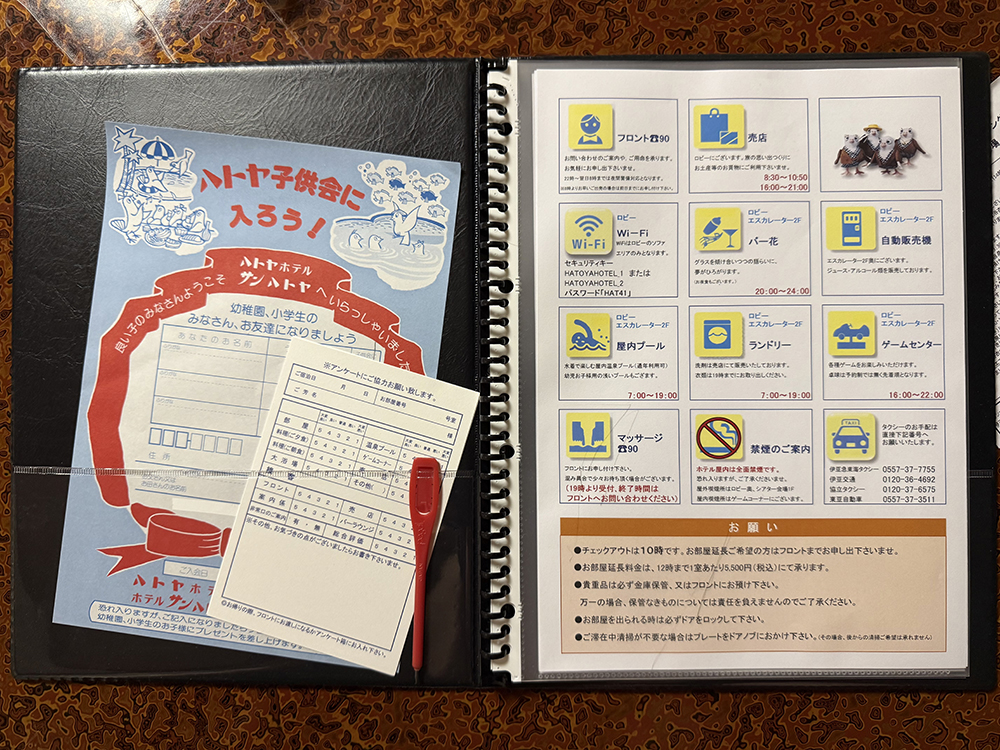 ハトヤ子供会に
入ろう！
良い子のみなさんようこそ
ハトヤホテル
サンハトヤ
へいらっしゃいました
幼稚園、小学生の
みなさん、お友達になりましょう
あなたのお名前
住所
ご入会日
ハトヤホテ
ホテルサンハ
恐れ入りますが、ご記入になりましたら
幼稚園、小学生のお子様にプレゼントを差し上げます
※アンケートにご協力お願い致します。
ご宿泊日 月 日 お部屋番号 号室
ご芳名 様
部屋 5 4 3 2 1 温泉プール 5 4 3 2 1
料理(ご夕食) 5 4 3 2 1 ゲームコーナー
料理(ご朝食) 5 4 3 2 1
大浴場 5 4 3 2 1 その他(
フロント 5 4 3 2 1
案内係 5 4 3 2 1 売店 5 4 3
非常口のご案内 有・無 バーラウンジ 5 4 3
総合評価 5 4 3 2 1
※その他、お気づきの点がございましたらお書き下さいませ。
◎お帰りの際、フロントにお渡しになるかアンケート箱にお入れ下さい。
フロント☎90
お問い合わせのご案内や、ご用命を承ります。
お気軽にお申し出下さいませ。
22時～翌日8時までは夜間警備対応となります。
売店
ロビーにございます。旅の思い出づくりに
お土産等のお買物にご利用下さいませ。
8:30～10:50
16:00～21:00
ロビー
Wi-Fi
Wi-Fi
WiFiはロビーのソファ
エリアのみとなります。
セキュリティキー
HATOYAHOTEL_1 または
HATOYAHOTEL_2
パスワード「HAT41」
ロビー
エスカレーター2F
バー花
グラスを傾け合いつつの語らいに、
夢がひろがります。
(お夜食もございます。)
20:00～24:00
ロビー
エスカレーター2F
自動販売機
エスカレーター2F奥にございます。
ジュース・アルコール類を販売しております。
ロビー
エスカレーター2F
屋内プール
水着で楽しむ屋内温泉プール(通年利用可)
幼児お子様用の浅いプールもございます。
7:00～19:00
ロビー
エスカレーター2F
ランドリー
洗剤は売店にて販売いたしております。
衣類は19時までにお取り出しください。
7:00～19:00
ロビー
エスカレーター2F
ゲームセンター
各種ゲームをお楽しみいただけます。
卓球は予約制では無く先着順となります。
16:00～22:00
マッサージ
☎90
フロントにお申し付け下さい。
混み具合で少々お待ち頂く場合がございます。
(19時より受付、終了時間は
フロントへお問い合わせください)
禁煙のご案内
ホテル屋内は全面禁煙です。
恐れ入りますが、ご了承くださいませ。
屋外喫煙所はロビー裏、シアター会場1F
屋内喫煙所はゲームコーナーにございます。
TAXI
タクシーのお手配は
直接下記番号へ
お願いいたします。
伊豆急東海タクシー 0557-37-7755
伊豆交通 0120-36-4692
協立タクシー 0120-37-6575
東豆自動車 0557-37-3511
お願い
●チェックアウトは10時です。お部屋延長ご希望の方はフロントまでお申し出下さいませ。
●お部屋延長料金は、12時まで1室あたり5,500円(税込)にて承ります。
●貴重品は必ず金庫保管、又はフロントにお預け下さい。
万一の場合、保管なきものについては責任を負えませんのでご了承ください。
●お部屋を出られる時は必ずドアをロックして下さい。
●ご滞在中清掃が不要な場合はプレートをドアノブにおかけ下さい。(その場合、後からの清掃ご希望は承れません)